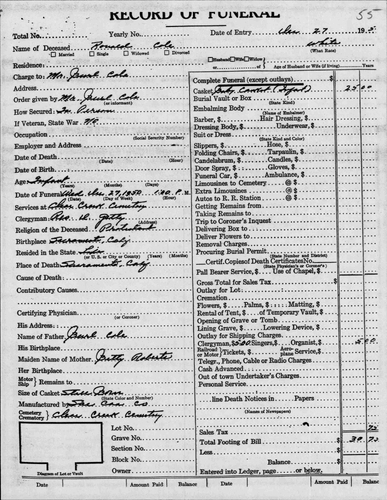 RECORD OF FUNERAL
55
Total No. Yearly No. Date of Entry Dec. 27, 195
Name of Deceased Ronald Cole White
Married Single Widowed Divorced (What Race)
Residence: Husband Wife Widow
Age of Husband or Wife (if living)
Charge to: Mr. Cole
Address
Order given by Mr. Cole
(or informant)
How Secured: In Person
If Veteran, State War No
Occupation
(Social Security Number)
Employer and Address
Date of Death
Date of Birth
Age Infant
(Years) (Months) (Days)
Date of Funeral Wed. Dec. 27, 1950 1:30 P. M.
(Day of Week) (Date) (Hour)
Services at Cemetery
Clergyman Rev. D.
(Address)
Religion of the Deceased Protestant
Birthplace Sacramento, Calif
Resided in the State Life
(or U. S. or City or County) (Years) (Months)
Place of Death Sacramento, Calif
Cause of Death
Contributory Causes
Certifying Physician
(or Coroner)
His Address
Name of Father Cole
His Birthplace
Maiden Name of Mother Betty Roberts
Her Birthplace
Motor Ship Remains to
Size of Casket Still Born
(State Color and Number)
Manufactured by
Cemetery Crematory Cemetery
Lot No.
Grave No.
Section No.
Block No.
Owner
Diagram of Lot or Vault
Complete Funeral (except outlays) $
Casket Baby Casket (Infant) 25 00
Burial Vault or Box
(State Kind)
Embalming Body
(Name of Embalmer)
Barber, $ Hair Dressing, $
Dressing Body, $ Underwear, $
Suit or Dress
(State Kind and Color)
Slippers, $ Hose, $
Folding Chairs, $ Tarpaulin, $
Candelabrum, $ Candles, $
Door Spray, $ Gloves, $
Funeral Car, $ Ambulance, $
Limousines to Cemetery @ $
Extra Limousines @ $
Autos to R. R. Station @ $
Getting Remains from
Taking Remains to
Trip to Coroner's Inquest
Delivering Box to
Deliver Flowers to
Removal Charges
Procuring Burial Permit
(State Number and District)
Certif. Copies of Death Certificates No.
(State Physician's or Coroner's)
Pall Bearer Service, $ Use of Chapel, $
Gross Total for Sales Tax $
Outlay for Lot
Cremation
Flowers, $ Palms, $ Matting, $
Rental of Tent, $ of Temporary Vault, $
Opening of Grave or Tomb
Lining Grave, $ Lowering Device, $
Outlay for Shipping Charges
Clergyman, $5.00 Singers, $ Organist, $ 5 00
Railroad or Motor Tickets, $ Aeroplane Service, $
Telegr., Phone, Cable or Radio Charges
Cash Advanced
Out of town Undertaker's Charges
Personal Service
line Death Notices in Papers
(Names of Newspapers)
Sales Tax 75
Total Footing of Bill $ 30 75
Less $
Balance $
Entered into Ledger, page or below.
Date Amount Paid Balance Date Amount Paid Balance